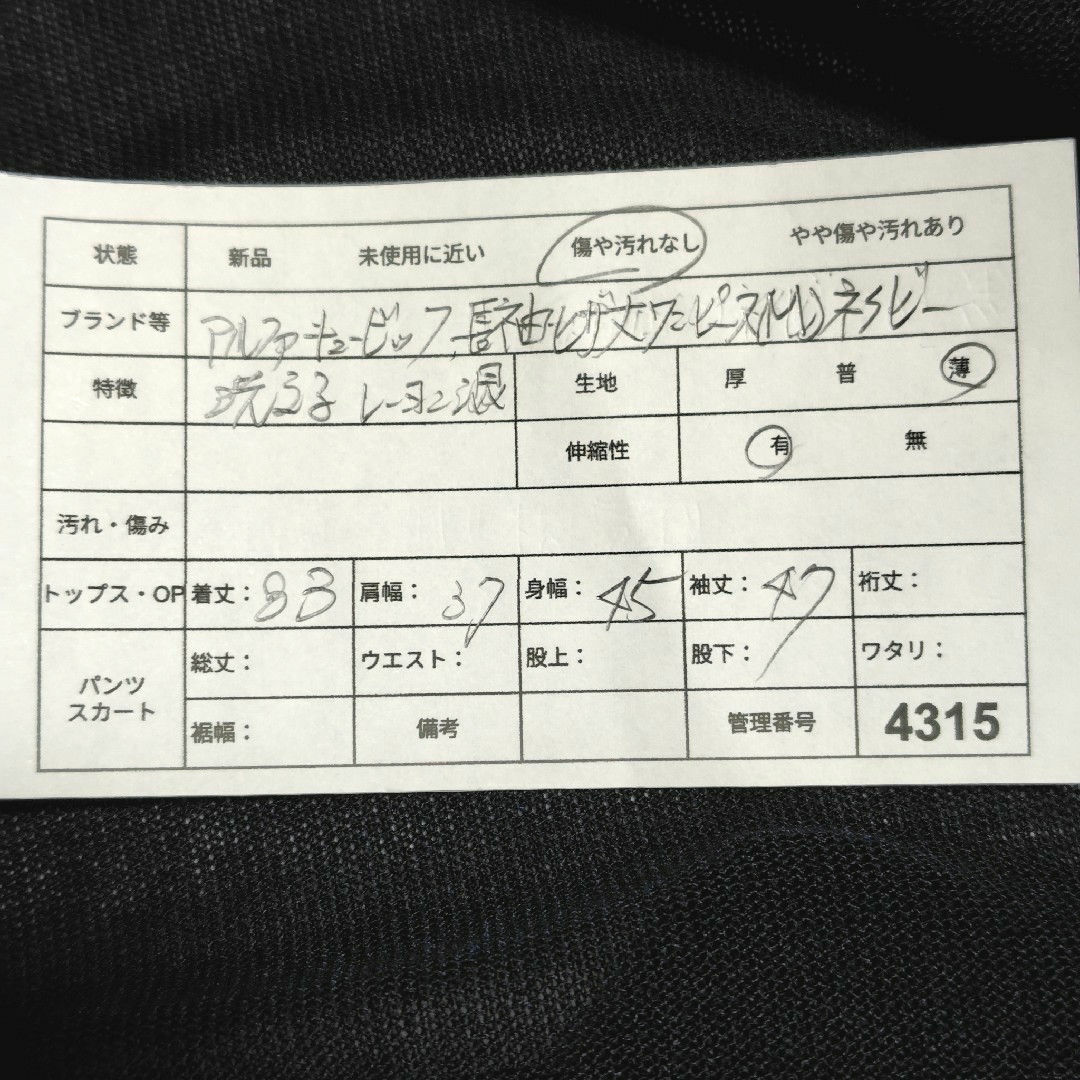 状態 新品 未使用に近い 傷や汚れなし やや傷や汚れあり
ブランド等 アルファーキュービック、長袖ヒザ丈ワンピース ネイビー
特徴 レーヨン混 生地 厚 普 薄
伸縮性 有 無
汚れ・傷み
トップス・OP 着丈：83 肩幅：37 身幅：45 袖丈：47 裄丈：
パンツ スカート
総丈： ウエスト： 股上： 股下： ワタリ：
裾幅： 備考 管理番号 4315